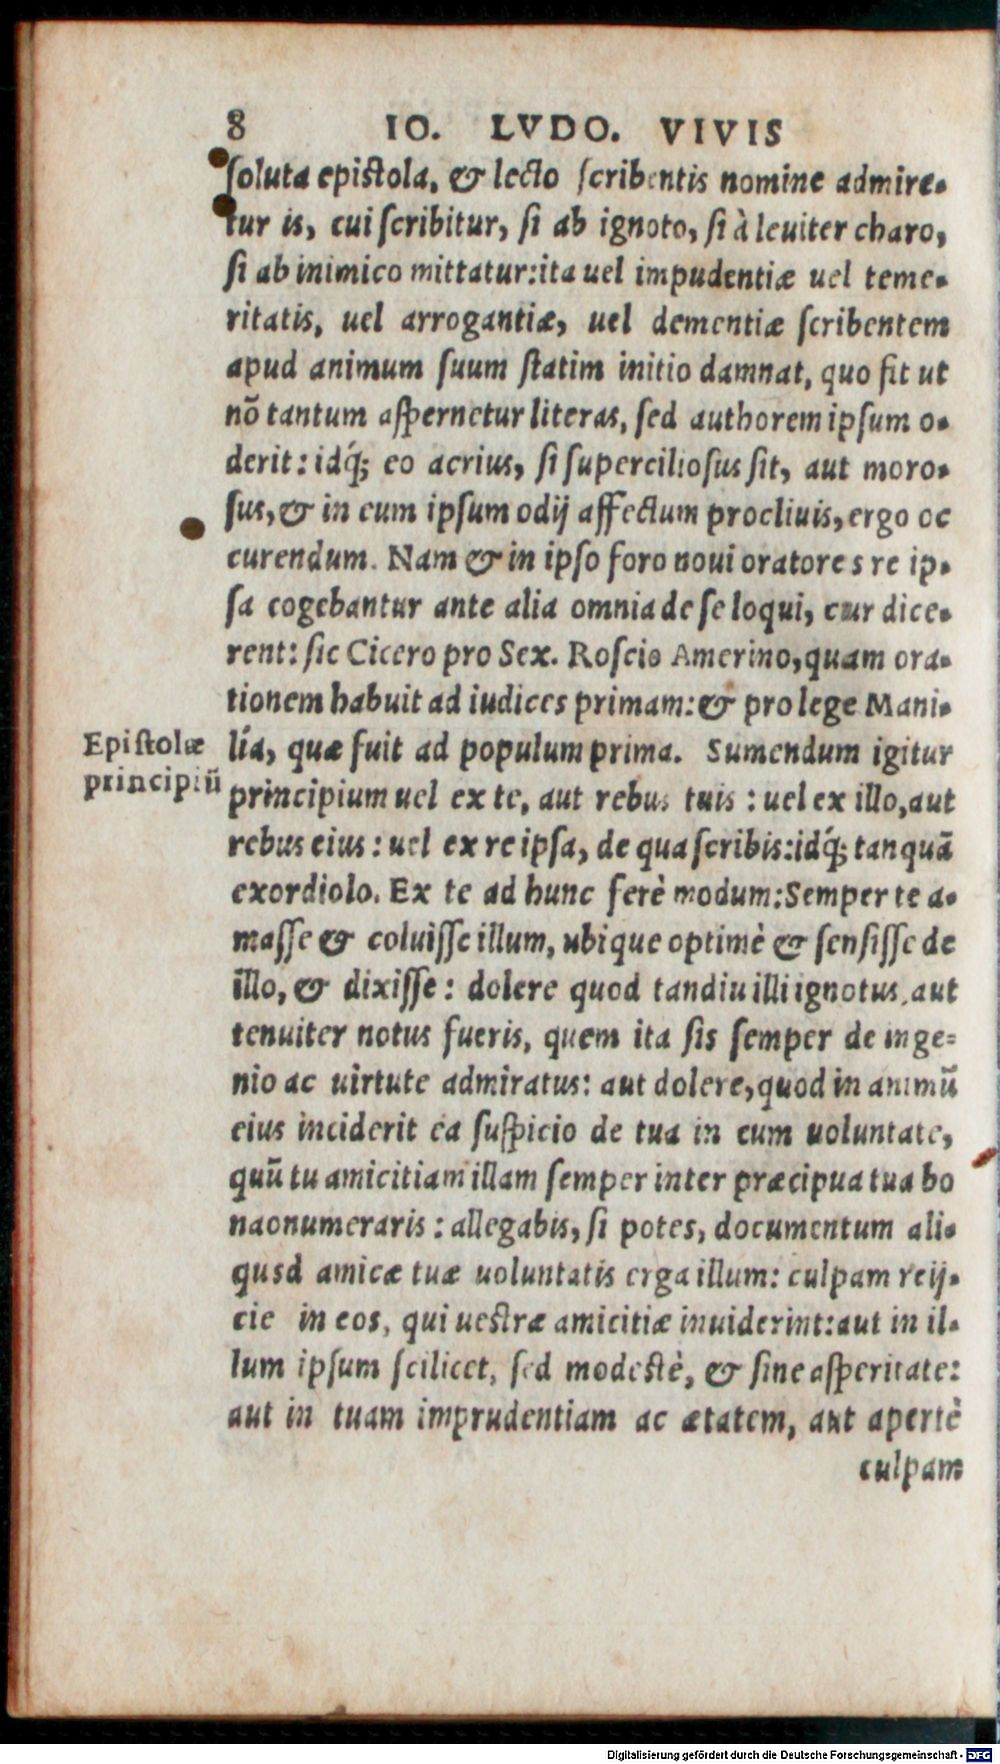 8 IO. LVDO. VIVIS
soluta epistola, & lecto scribentis nomine admire-
tur is, cui scribitur, si ab ignoto, si à leuiter charo,
si ab inimico mittatur: ita uel impudentiæ uel teme-
ritatis, uel arrogantiæ, uel dementiæ scribentem
apud animum suum statim initio damnat, quo fit ut
nõ tantum aspernetur literas, sed authorem ipsum o-
derit: idq́; eo acrius, si superciliosus sit, aut moro-
sus, & in eum ipsum odij affectum procliuis, ergo oc
curendum. Nam & in ipso foro noui oratores re ip-
sa cogebantur ante alia omnia de se loqui, cur dice-
rent: sic Cicero pro Sex. Roscio Amerino, quam ora-
tionem habuit ad iudices primam: & pro lege Mani-
Epistolæ
principiũ
lia, quæ fuit ad populum prima. Sumendum igitur
principium uel ex te, aut rebus tuis : uel ex illo, aut
rebus eius : uel ex re ipsa, de qua scribis: idq́; tanquã
exordiolo. Ex te ad hunc ferè modum: Semper te a-
masse & coluisse illum, ubique optimè & sensisse de
illo, & dixisse : dolere quod tandiu illi ignotus, aut
tenuiter notus fueris, quem ita sis semper de inge-
nio ac uirtute admiratus: aut dolere, quod in animũ
eius inciderit ea suspicio de tua in eum uoluntate,
quũ tu amicitiam illam semper inter præcipua tua bo
naonumeraris : allegabis, si potes, documentum ali-
qusd amicæ tuæ uoluntatis erga illum: culpam reij-
cie in eos, qui uestræ amicitiæ inuiderint: aut in il-
lum ipsum scilicet, sed modestè, & sine asperitate:
aut in tuam imprudentiam ac ætatem, aut apertè
culpam
Digitalisierung gefördert durch die Deutsche Forschungsgemeinschaft - DFG